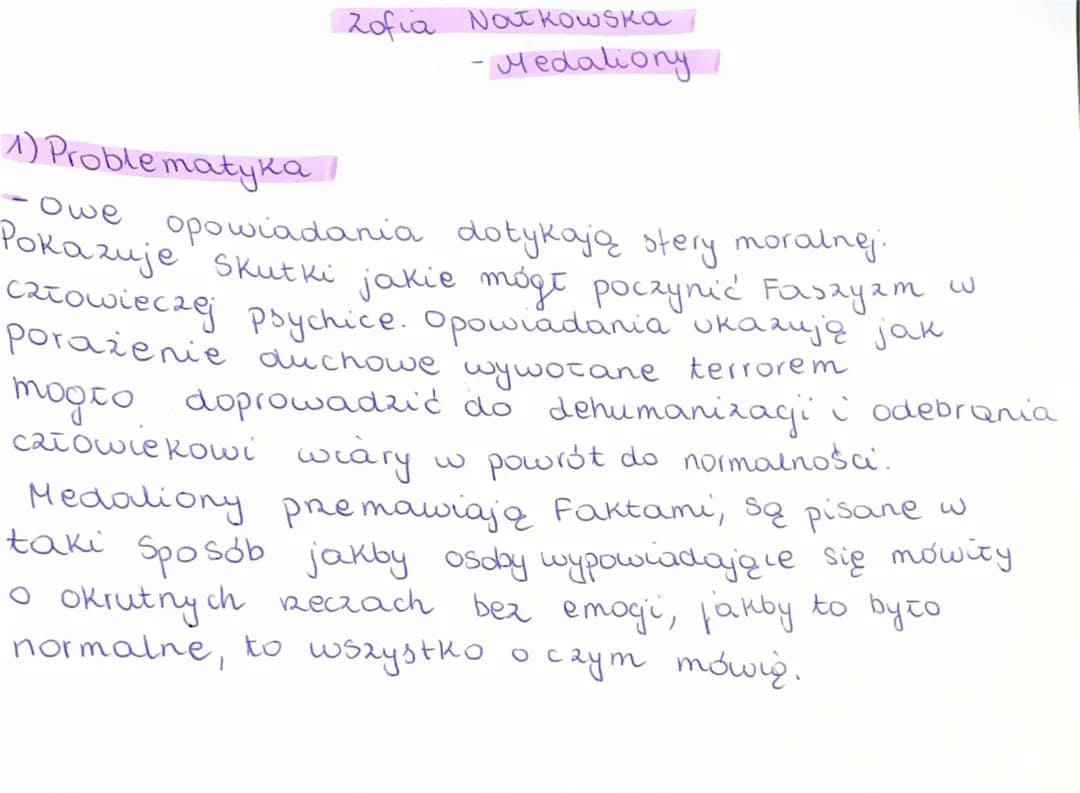 Zofia Nałkowska
- Medaliony
1) Problematyka
- Owe opowiadania dotykają sfery moralnej.
Pokazuje skutki jakie mógł poczynić Faszyzm w
człowieczej psychice. Opowiadania ukazują jak
porażenie duchowe wywołane terrorem
mogło doprowadzić do dehumanizacji i odebrania
człowiekowi wiary w powrót do normalności.
Medaliony przemawiają Faktami, są pisane w
taki sposób jakby osoby wypowiadające się mówiły
o okrutnych rzeczach bez emocji, jakby to było
normalne, to wszystko o czym mówią.